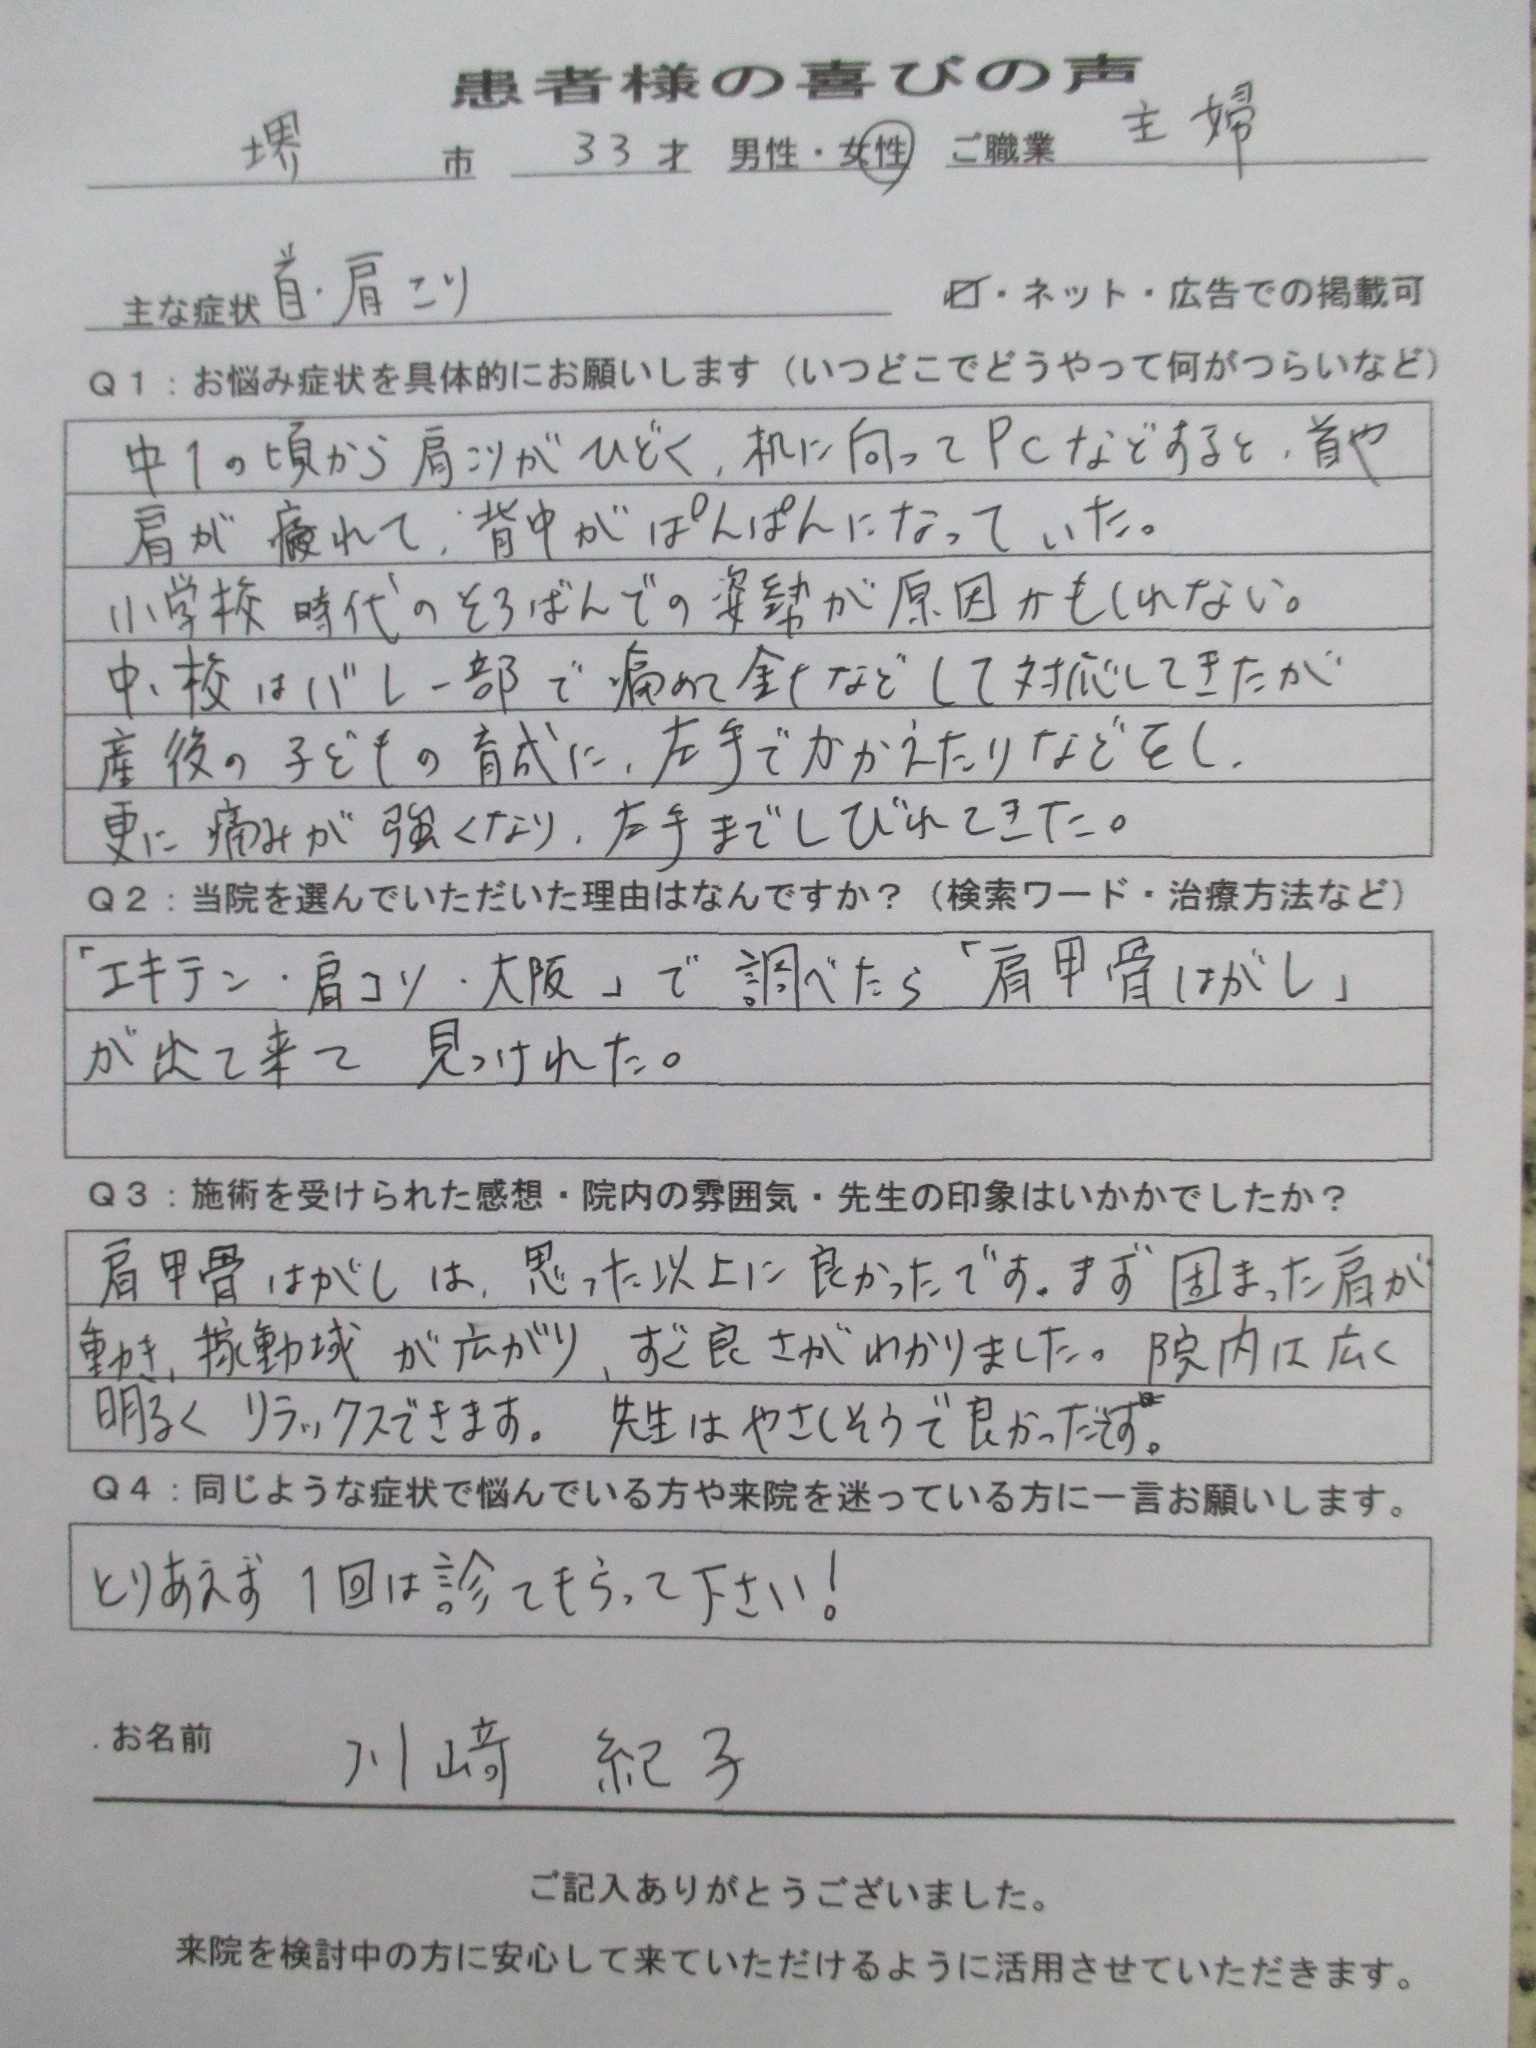 患者様の喜びの声
堺 市 33 才 男性・女性 ご職業 主婦
主な症状 首・肩こり ☑・ネット・広告での掲載可
Q1:お悩み症状を具体的にお願いします(いつどこでどうやって何がつらいなど)
中1の頃から肩コリがひどく、机に向ってPCなどすると、首や
肩が疲れて、背中がぱんぱんになっていた。
小学校時代のそろばんでの姿勢が原因かもしれない。
中、校はバレー部で痛めて金十などして対応してきたが
産後の子どもの育成に、左手でかかえたりなどをし、
更に痛みが強くなり、左手までしびれてきた。
Q2:当院を選んでいただいた理由はなんですか?(検索ワード・治療方法など)
「エキテン・肩コリ・大阪」で調べたら「肩甲骨はがし」
が出て来て見つけれた。
Q3:施術を受けられた感想・院内の雰囲気・先生の印象はいかかでしたか?
肩甲骨はがしは、思った以上に良かったです。まず固まった肩が
動き、稼動域が広がり、すぐ良さがわかりました。院内は広く
明るくリラックスできます。先生はやさしそうで良かったです。
Q4:同じような症状で悩んでいる方や来院を迷っている方に一言お願いします。
とりあえず1回は診てもらって下さい!
お名前 川﨑 紀子
ご記入ありがとうございました。
来院を検討中の方に安心して来ていただけるように活用させていただきます。